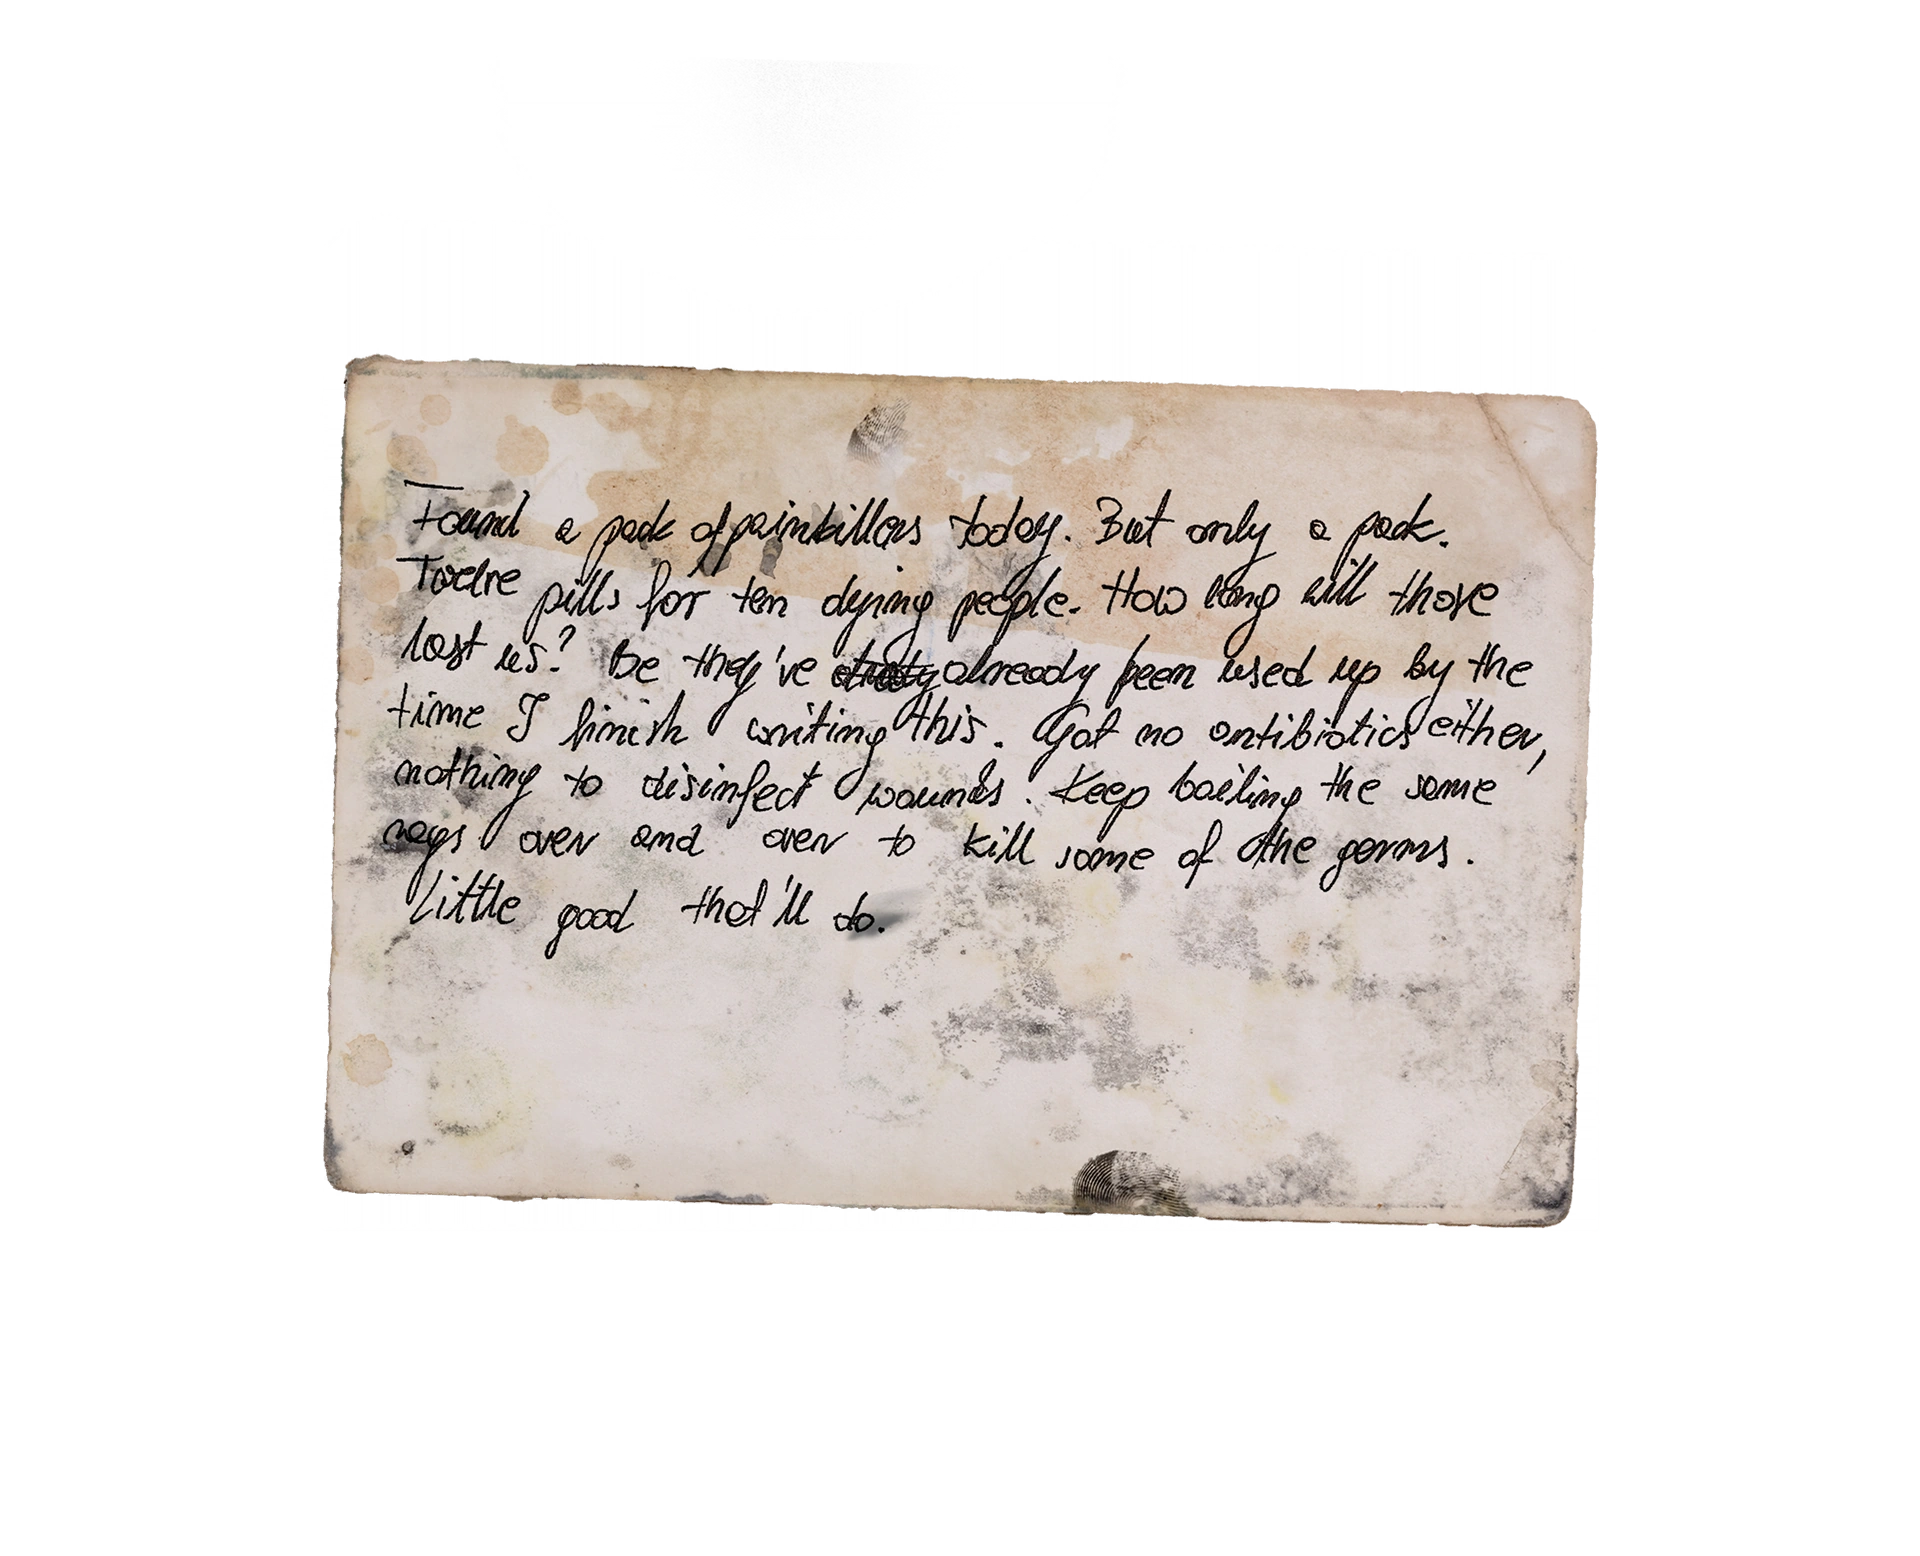 Found a pack of painkillers today. But only a pack.
Twelve pills for ten dying people. How long will those
last us? Be they've already been used up by the
time I finish writing this. Got no antibiotics either,
nothing to disinfect wounds. Keep boiling the same
rags over and over to kill some of the germs.
Little good that'll do.